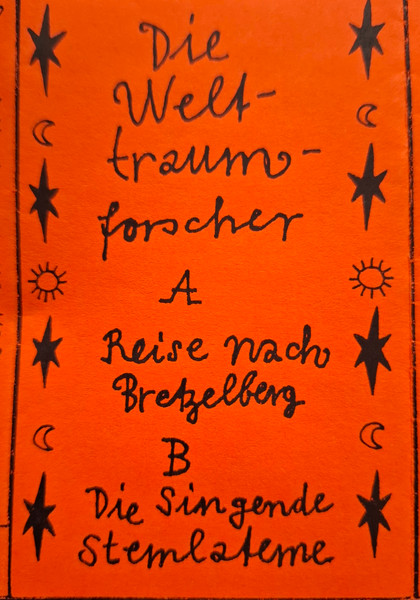 Die
Welt-
traum-
forscher
A
Reise nach
Bretzelberg
B
Die Singende
Sternlaterne